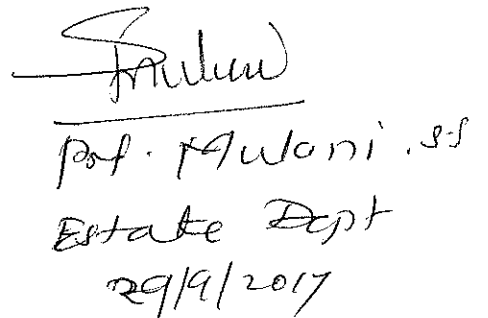 Prof. Mulani .S.S
Estate Dept
29/9/2017